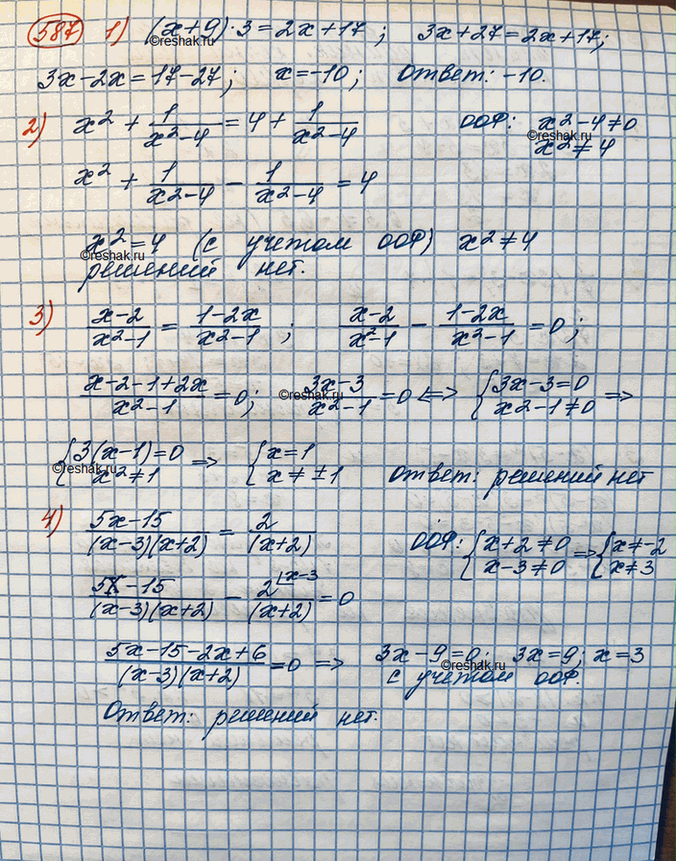 587 1) (x+9)·3=2x+17; 3x+27=2x+17;
3x-2x=17-27; x=-10; Ответ: -10.
2) x² + 1/(x²-4) = 4 + 1/(x²-4) ООФ: x²-4≠0
x²≠4
x² + 1/(x²-4) - 1/(x²-4) = 4
x²=4 (с учетом ООФ) x²≠4
решений нет.
3) (x-2)/(x²-1) = (1-2x)/(x²-1) ; (x-2)/(x²-1) - (1-2x)/(x²-1) = 0;
(x-2-1+2x)/(x²-1) = 0; (3x-3)/(x²-1) = 0 <=> {3x-3=0 x²-1≠0 =>
{3(x-1)=0 x²≠1 => {x=1 x≠±1 Ответ: решений нет
4) (5x-15)/((x-3)(x+2)) = 2/(x+2) ООФ: {x+2≠0 x-3≠0 => {x≠-2 x≠3
(5x-15)/((x-3)(x+2)) - 2\x-3/(x+2) = 0
(5x-15-2x+6)/((x-3)(x+2)) = 0 => 3x-9=0; 3x=9; x=3
с учетом ООФ.
Ответ: решений нет.
©reshak.ru
©reshak.ru
©reshak.ru
©reshak.ru
©reshak.ru
©reshak.ru